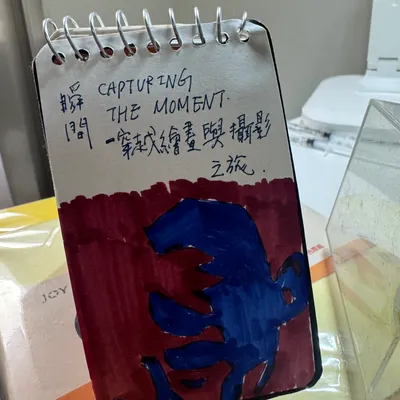 瞬間
CAPTURING
THE MOMENT.
—穿越繪畫與攝影
之旅.
JOY